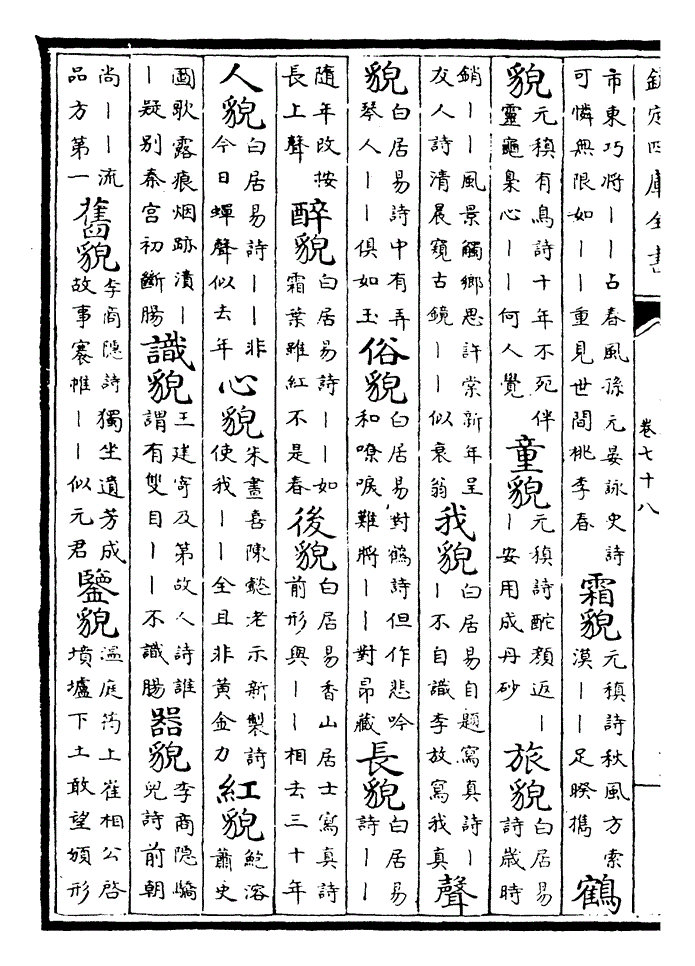 欽定四庫全書 卷七十八
市東巧將丨丨占春風孫元晏詠史詩可憐無限如丨丨重見世間桃李春 霜貌 元稹詩秋風方索漠丨丨足暌攜 鶴
貌 元稹有鳥詩十年不死伴靈龜梟心丨丨何人覺 童貌 元稹詩酡顏返丨丨安用成丹砂 旅貌 白居易詩歲時
銷丨丨風景觸鄉思許棠新年呈友人詩清晨窺古鏡丨丨似衰翁 我貌 白居易自題寫真詩丨丨不自識李放寫我真 聲
貌 白居易詩中有弄琴人丨丨俱如玉 俗貌 白居易對鶴詩但作悲吟和嘹唳難將丨丨對昂藏 長貌 白居易詩丨丨
隨年改按長上聲 醉貌 白居易詩丨丨如霜葉雖紅不是春 後貌 白居易香山居士寫真詩前形與丨丨相去三十年
人貌 白居易詩丨丨非今日蟬聲似去年 心貌 朱晝喜陳懿老示新製詩使我丨丨全且非黃金力 紅貌 鮑溶蕭史
圖歌露痕烟跡漬丨丨疑別秦宮初斷腸 識貌 王建寄及第故人詩誰謂有雙目丨丨不識腸 器貌 李商隱驕兒詩前朝
尚丨丨流品方第一 舊貌 李商隱詩獨坐遺芳成故事褰帷丨丨似元君 鑒貌 溫庭筠上崔相公啓墳壚下土敢望頒形